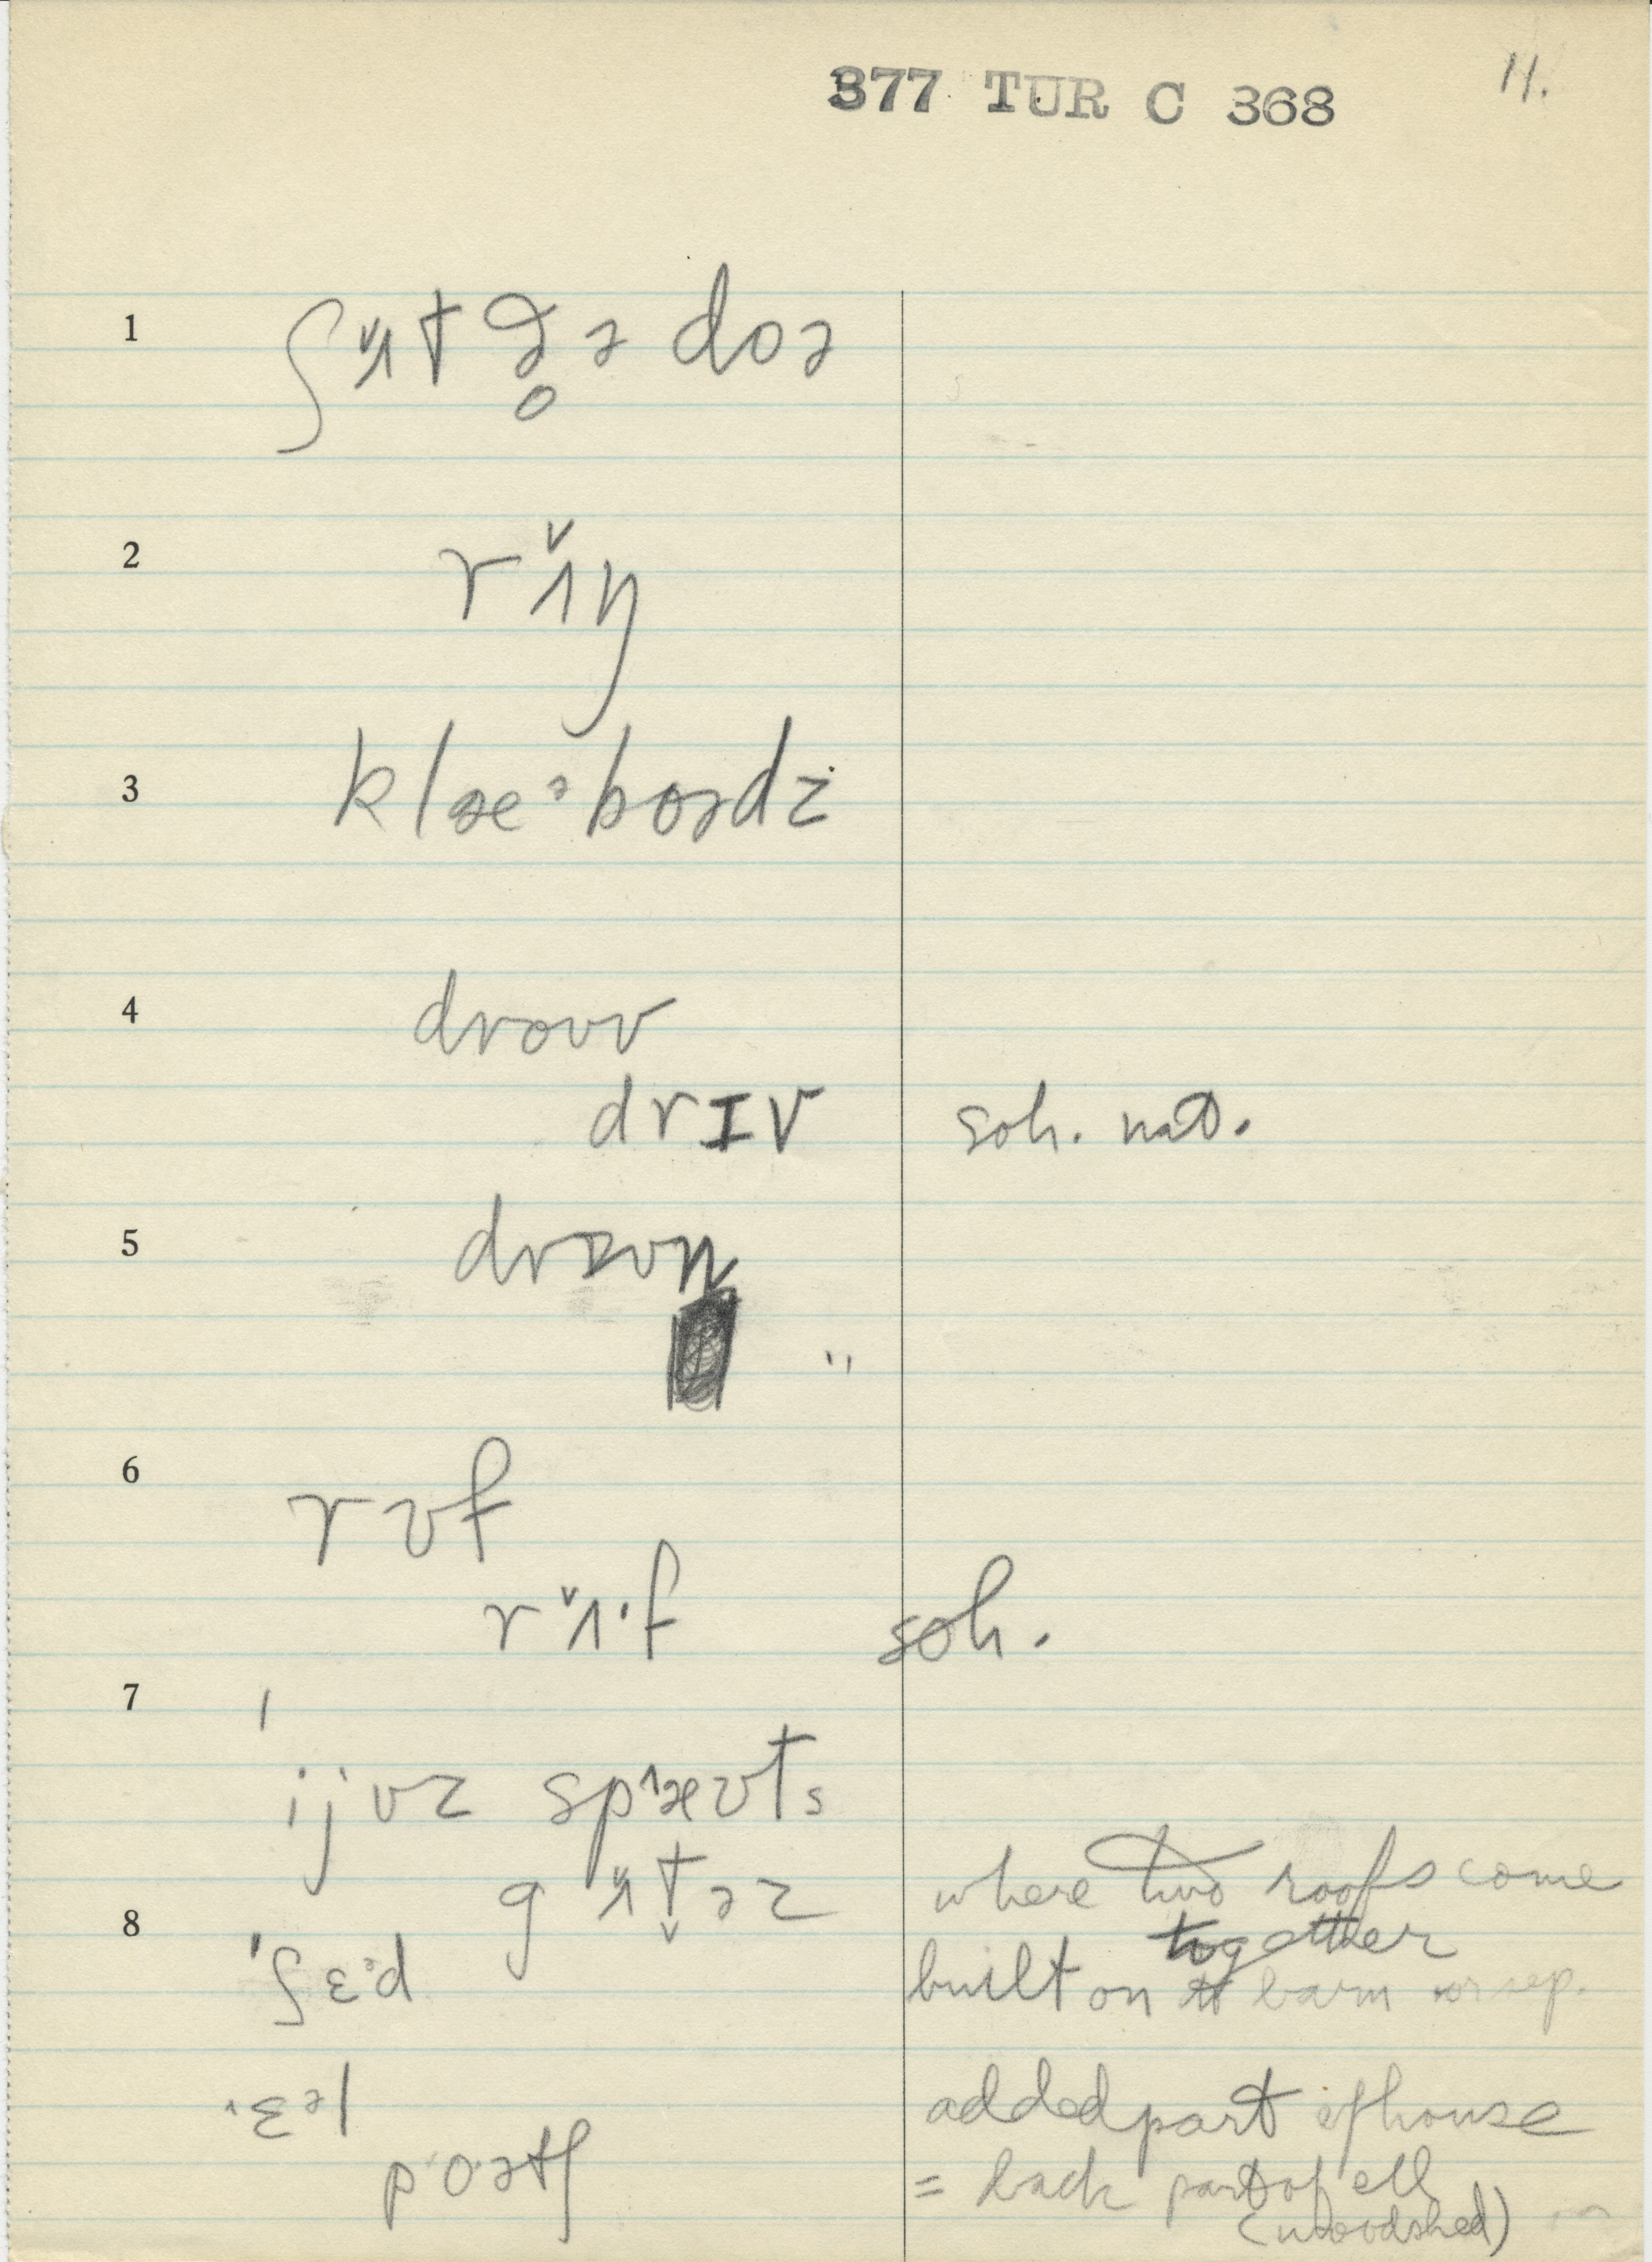 377 TUR C 368 11.
1 ʃʌ̌t ðə̥ ə doə
2 rʌ̌ŋ
3 klæᵊbɒədz
4 droʊv
drɪv soh. nat.
5 drɪvn̩
"
6 rʊf
rʌ̌·f soh.
7 ˈijvz spæʊts
gʌ̌t̬əz where two roofs come
together
8 ˈʃɛᵊd built on to barn or sep.
ˈɛᵊl added part of house
poətʃ = back part of ell
(woodshed)